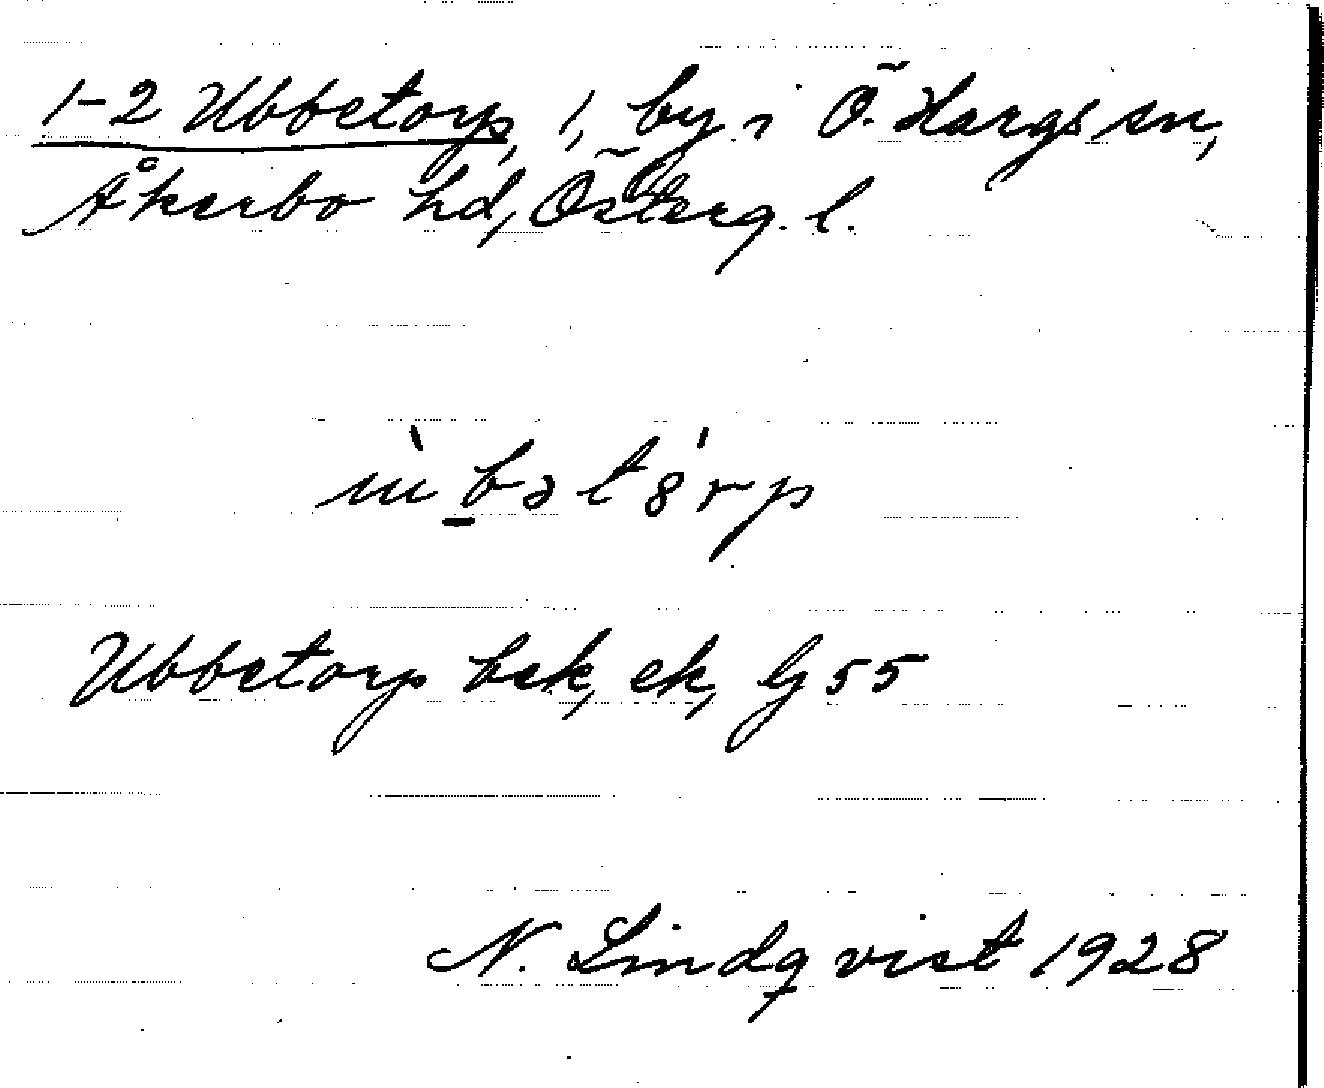 1-2 Ubbetorp, 1, by i Ö. Hargs sn,
Åkerbo hd, Österg. l.
ùbətórp
Ubbetorp bek, ek, Gj 55
N. Lindqvist 1928